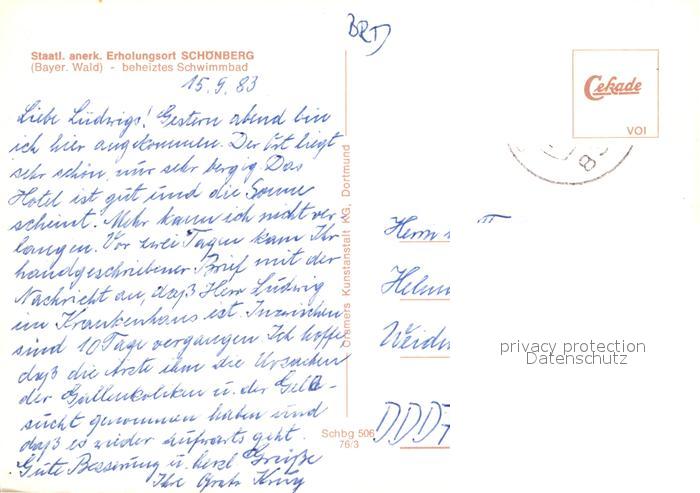 BRD
Staatl. anerk. Erholungsort SCHÖNBERG
(Bayer. Wald) - beheiztes Schwimmbad
15.9.83
Liebe Ludwigs! Gestern abend bin
ich hier angekommen. Der Ort liegt
sehr schön, nur sehr bergig. Das
Hotel ist gut und die Sonne
scheint. Mehr kann ich nicht ver-
langen. Vor zwei Tagen kam Ihr
handgeschriebener Brief mit der
Nachricht an, daß Herr Ludwig
im Krankenhaus ist. Inzwischen
sind 10 Tage vergangen. Ich hoffe
daß die Ärzte ihm die Ursachen
der Gallenkoliken u. der Gelb-
sucht genommen haben und
daß es wieder aufwärts geht.
Gute Besserung u. herzl. Grüße
Ihre Krug
Cramers Kunstanstalt KG, Dortmund
Schbg 506
76/3
Cekade
VOI
8
Herrn
Helmu
Weid
DDR
privacy protection
Datenschutz